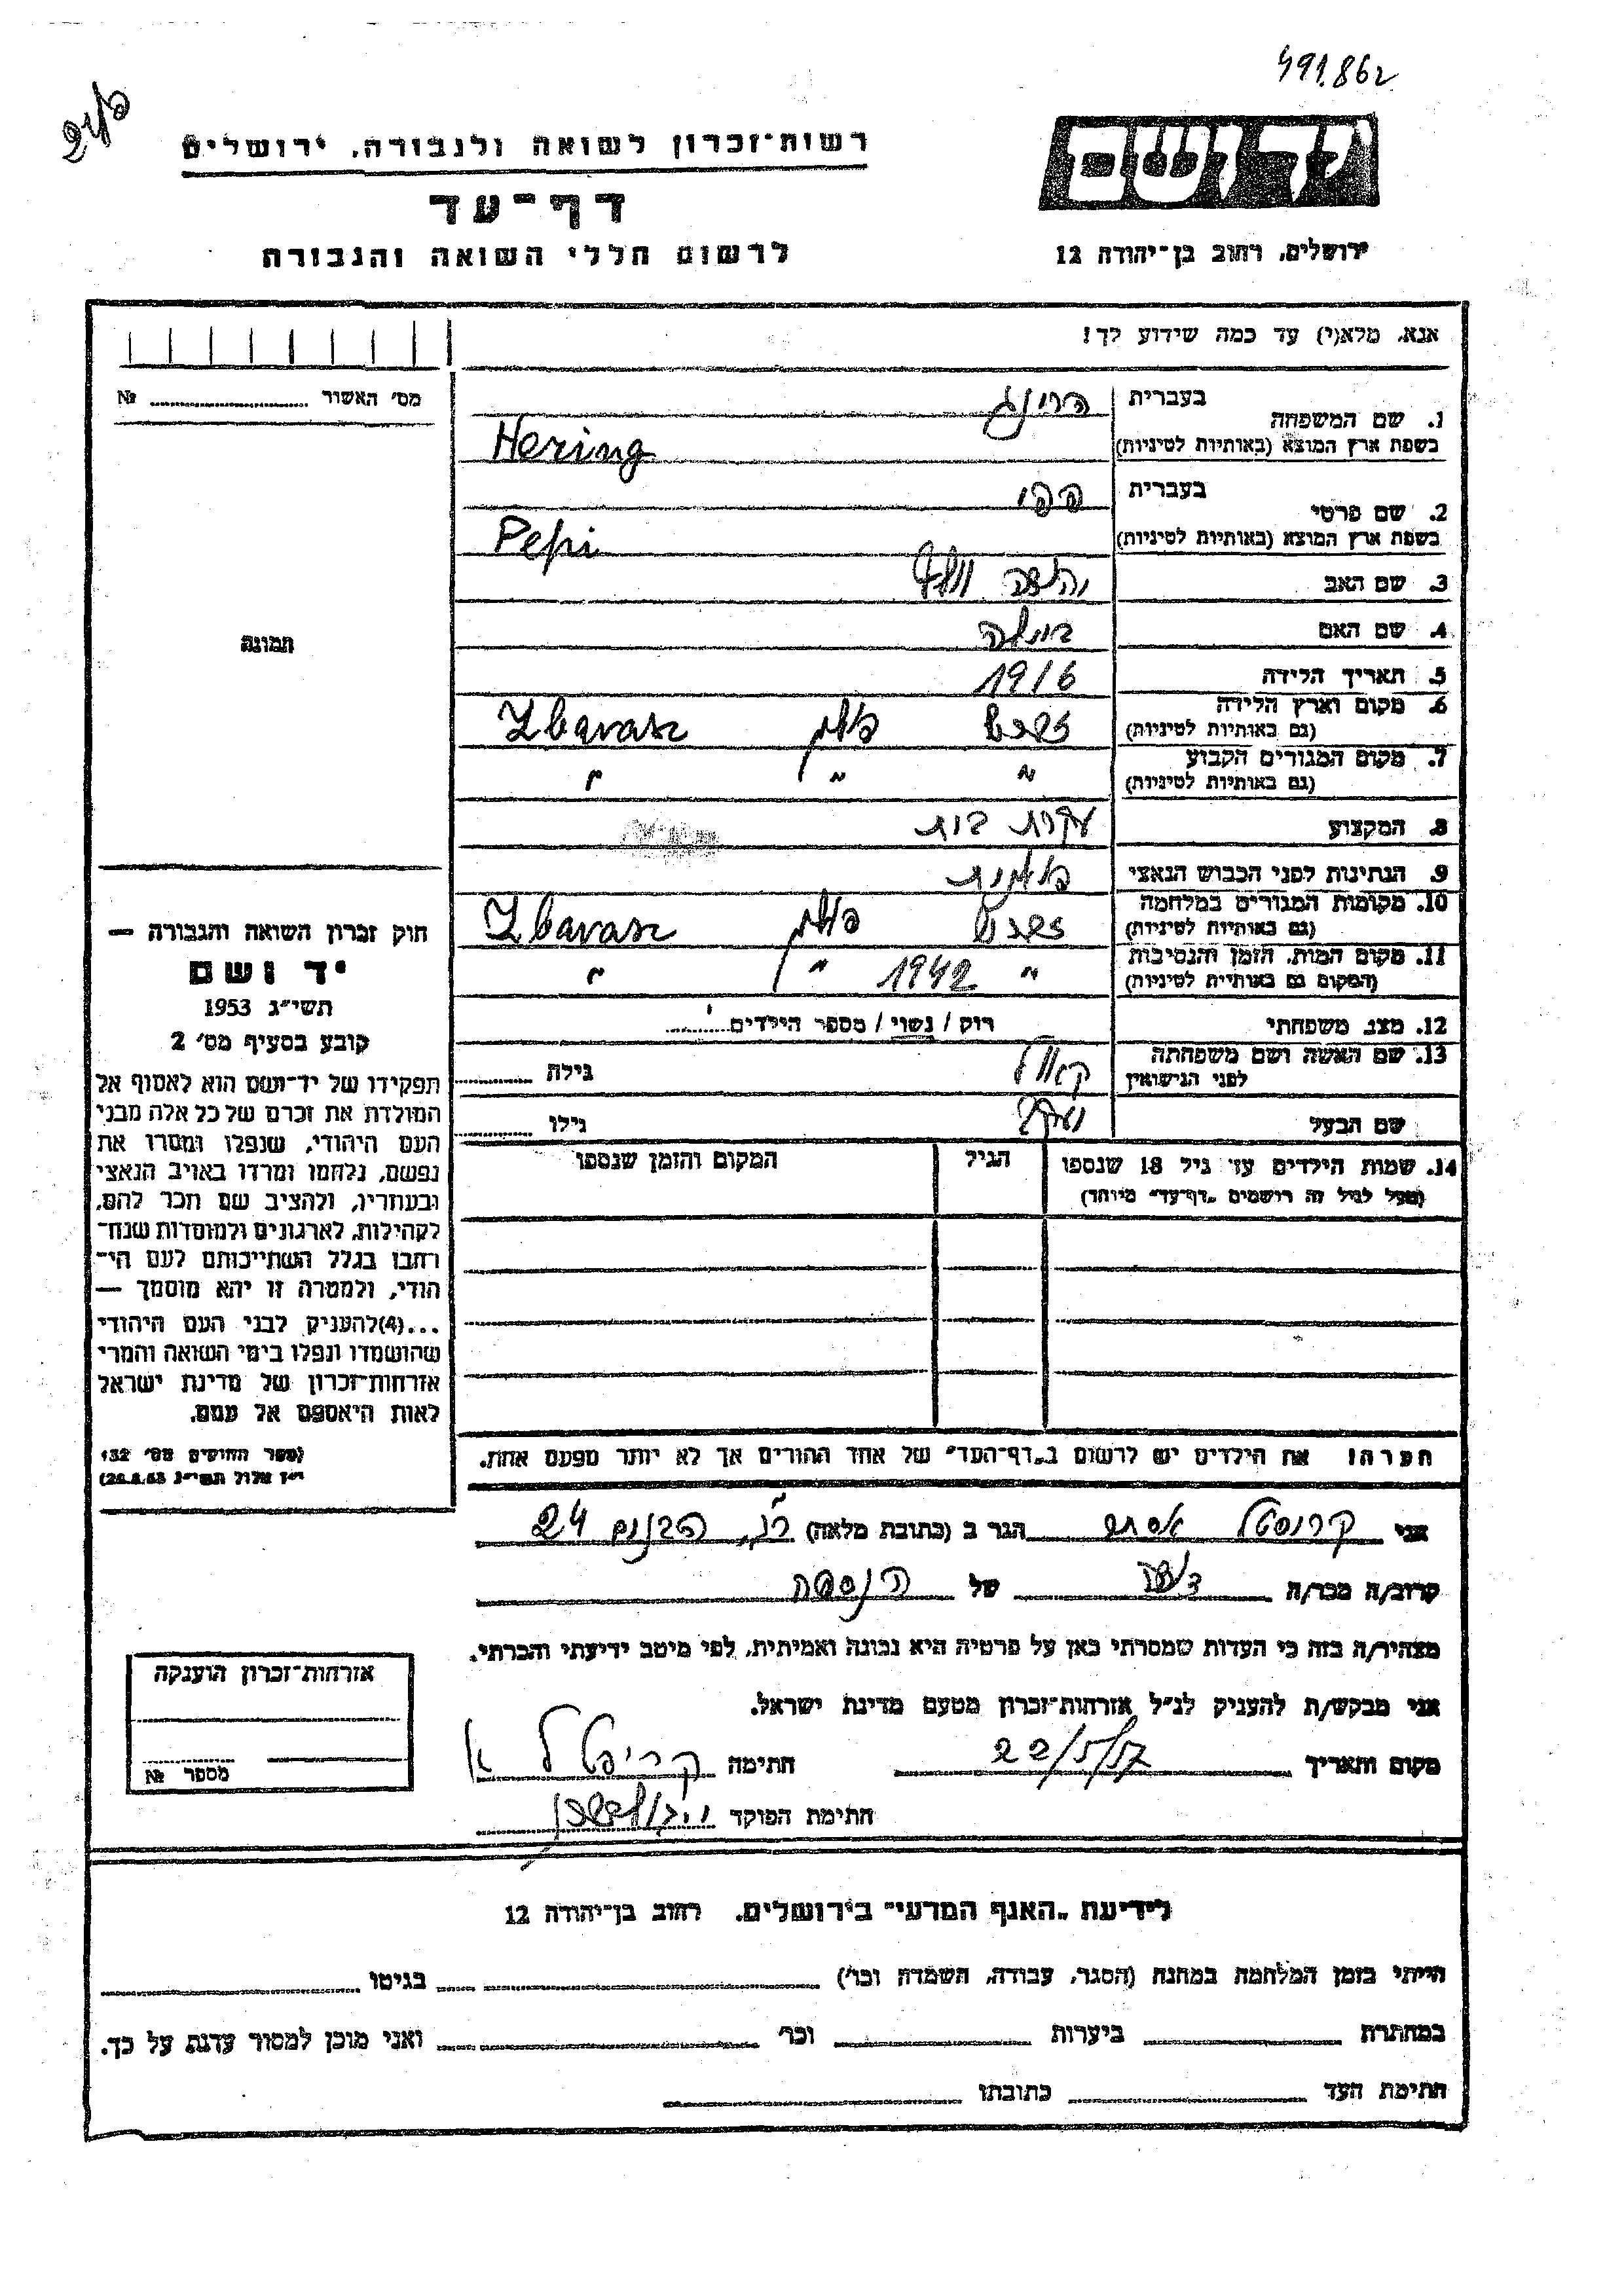 491.862
רשות־זכרון לשואה ולגבורה, ירושלים
דף־עד
לרשום חללי השואה והגבורה
יד ושם
ירושלים, רחוב בן־יהודה 12
אנא, מלא(י) עד כמה שידוע לך!
מס׳ האשור № ........
1. שם המשפחה בעברית הרינג
בשפת ארץ המוצא (באותיות לטיניות) Hering
2. שם פרטי בעברית פפי
בשפת ארץ המוצא (באותיות לטיניות) Pepi
3. שם האב
4. שם האם
5. תאריך הלידה 1916
6. מקום וארץ הלידה (גם באותיות לטיניות) זברז׳ פולין Zbarasz
7. מקום המגורים הקבוע (גם באותיות לטיניות) " " "
8. המקצוע עקרת בית
9. הנתינות לפני הכבוש הנאצי פולנית
10. מקומות המגורים במלחמה (גם באותיות לטיניות) זברז׳ פולין Zbarasz
11. מקום המות, הזמן והנסיבות (המקום גם באותיות לטיניות) " 1942 " "
12. מצב משפחתי רוק / נשוי / מספר הילדים ........
13. שם האשה ושם משפחתה לפני הנישואין גילה ........
שם הבעל גילו ........
14. שמות הילדים עד גיל 18 שנספו הגיל המקום והזמן שנספו
(מעל לגיל זה רושמים „דף־עד" מיוחד)
תמונה
חוק זכרון השואה והגבורה —
יד ושם
תשי״ג 1953
קובע בסעיף מס׳ 2
תפקידו של יד־ושם הוא לאסוף אל
המולדת את זכרם של כל אלה מבני
העם היהודי, שנפלו ומסרו את
נפשם, נלחמו ומרדו באויב הנאצי
ובעוזריו, ולהציב שם וזכר להם,
לקהילות, לארגונים ולמוסדות שנח־
רבו בגלל השתייכותם לעם הי־
הודי, ולמטרה זו יהא מוסמך —
...(4)להעניק לבני העם היהודי
שהושמדו ונפלו בימי השואה והמרי
אזרחות־זכרון של מדינת ישראל
לאות היאספם אל עמם.
(ספר החוקים מס׳ 132,
י״ז אלול תשי״ג 28.8.53)
הערה: את הילדים יש לרשום ב„דף־העד" של אחד ההורים אך לא יותר מפעם אחת.
אני קריסטל אסתר הגר ב (כתובת מלאה) הבנים 24
קרוב/ה מכר/ה של הנספה
מצהיר/ה בזה כי העדות שמסרתי כאן על פרטיה היא נכונה ואמיתית, לפי מיטב ידיעתי והכרתי.
אני מבקש/ת להעניק לנ״ל אזרחות־זכרון מטעם מדינת ישראל.
מקום ותאריך 22/5/57 חתימה קריסטל א
חתימת הפוקד
אזרחות־זכרון הוענקה
מספר №
לידיעת „האגף המדעי" בירושלים, רחוב בן־יהודה 12
הייתי בזמן המלחמה במחנה (הסגר, עבודה, השמדה וכו׳) בגיטו
במחתרת ביערות וכו׳ ואני מוכן למסור עדות על כך.
חתימת העד כתובתו